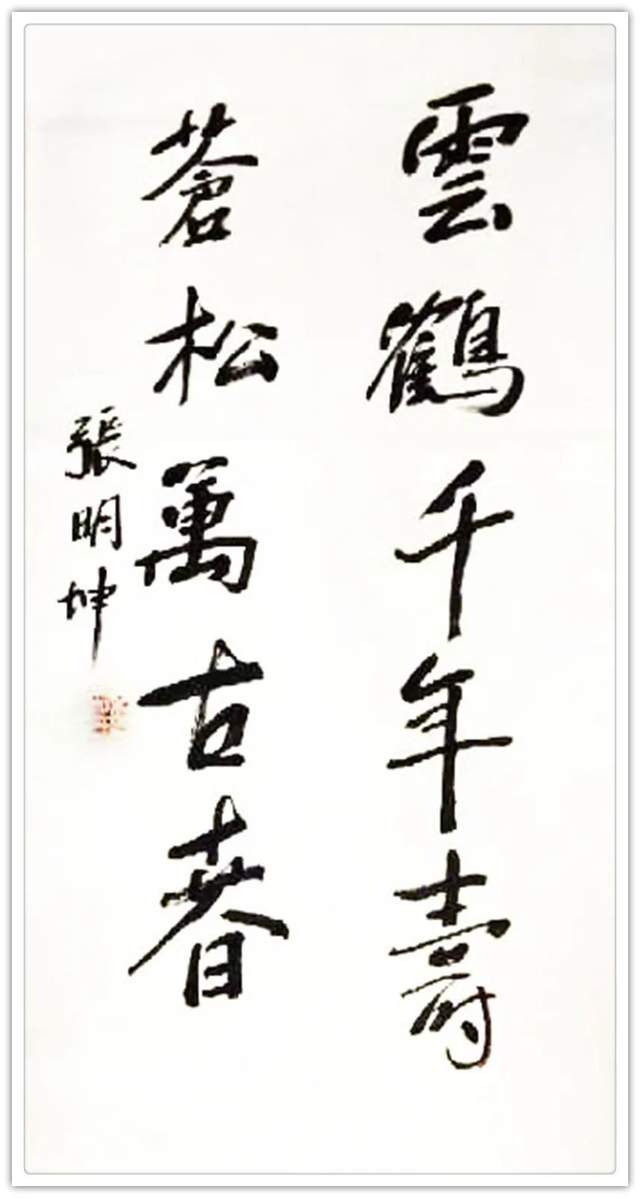 雲鶴千年壽
蒼松萬古春
張明坤